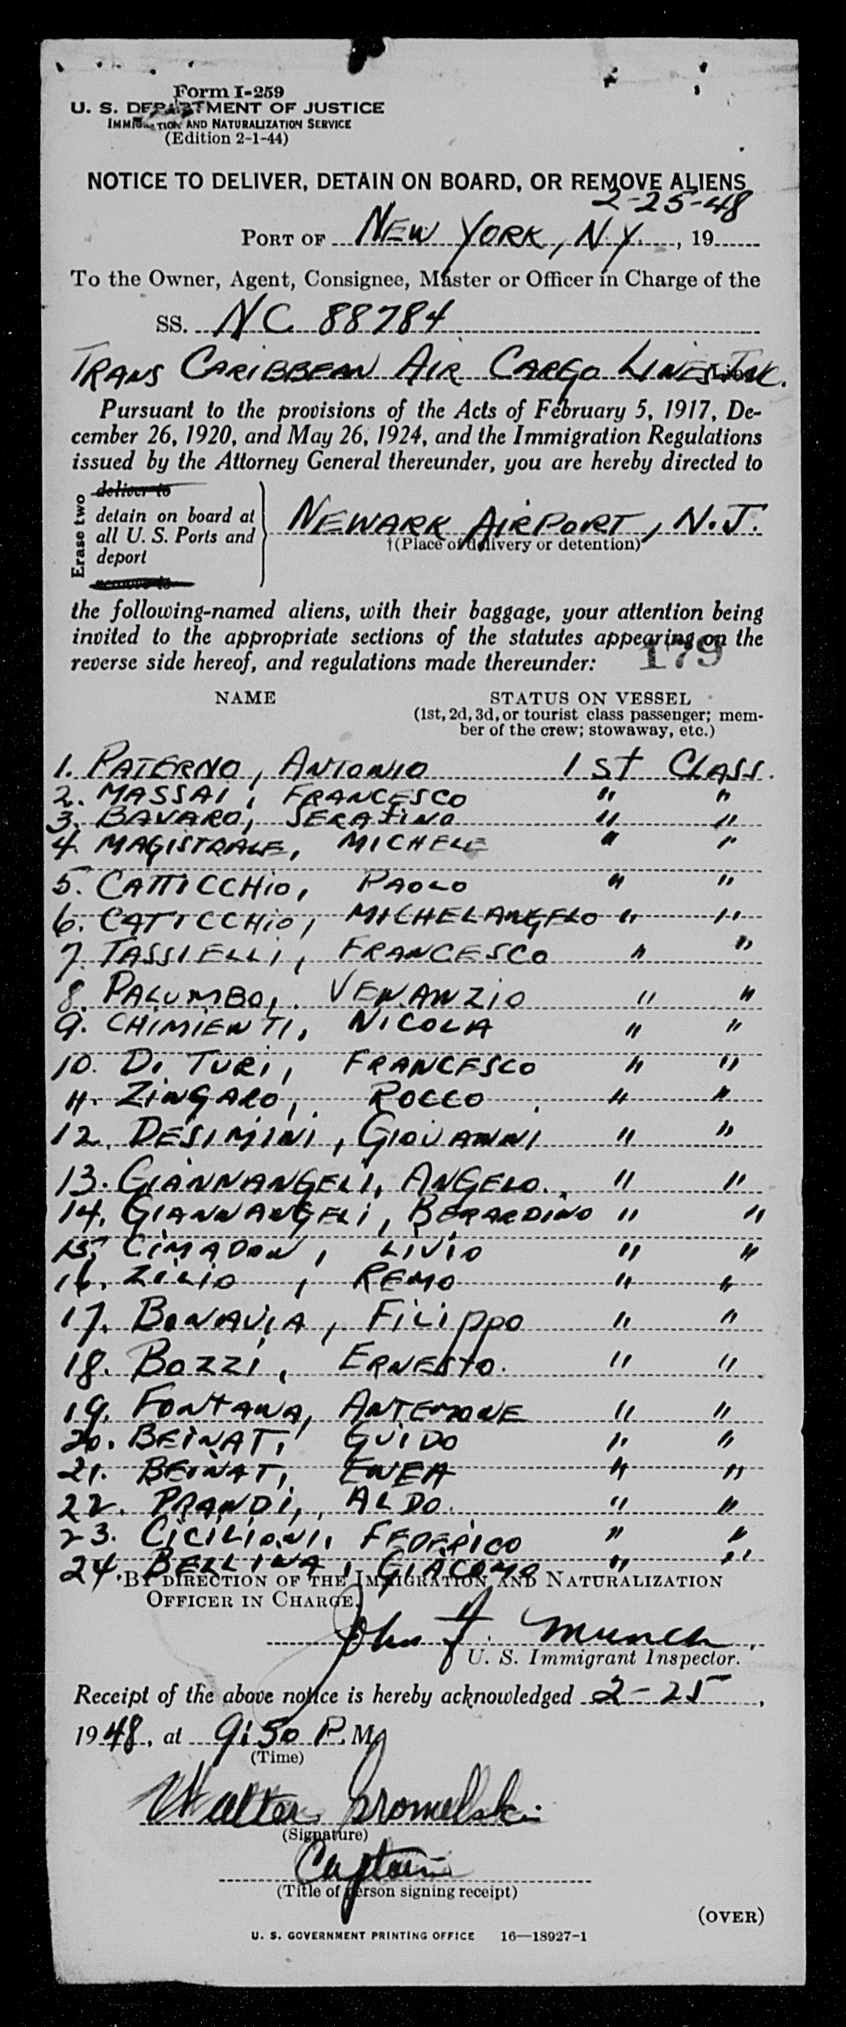 Form I-259
U. S. DEPARTMENT OF JUSTICE
IMMIGRATION AND NATURALIZATION SERVICE
(Edition 2-1-44)
NOTICE TO DELIVER, DETAIN ON BOARD, OR REMOVE ALIENS
2-25-48
PORT OF NEW YORK, N.Y., 19
To the Owner, Agent, Consignee, Master or Officer in Charge of the
SS. NC 88784
TRANS CARIBBEAN AIR CARGO LINES INC.
Pursuant to the provisions of the Acts of February 5, 1917, De-
cember 26, 1920, and May 26, 1924, and the Immigration Regulations
issued by the Attorney General thereunder, you are hereby directed to
Erase two
deliver to
detain on board at
all U. S. Ports and
deport
remove to
NEWARK AIRPORT, N.J.
†(Place of delivery or detention)
the following-named aliens, with their baggage, your attention being
invited to the appropriate sections of the statutes appearing on the
reverse side hereof, and regulations made thereunder:
179
NAME STATUS ON VESSEL
(1st, 2d, 3d, or tourist class passenger; mem-
ber of the crew; stowaway, etc.)
1. PATERNO, ANTONIO 1st CLASS.
2. MASSAI, FRANCESCO " "
3. BAVARO, SERAFINO " "
4. MAGISTRALE, MICHELE " "
5. CATTICCHIO, PAOLO " "
6. CATICCHIO, MICHELANGELO " "
7. TASSIELLI, FRANCESCO " "
8. PALUMBO, VENANZIO " "
9. CHIMIENTI, NICOLA " "
10. DI TURI, FRANCESCO " "
11. ZINGARO, ROCCO " "
12. DESIMINI, GIOVANNI " "
13. GIANNANGELI, ANGELO. " "
14. GIANNANGELI, BERARDINO " "
15. CIMADON, LIVIO " "
16. ZILIO, REMO " "
17. BONAVIA, FILIPPO " "
18. BOZZI, ERNESTO. " "
19. FONTANA, ANTEMONE " "
20. BEINATI, GUIDO " "
21. BEINATI, ENEA " "
22. PRANDI, ALDO. " "
23. CICILIONI, FEDERICO " "
24. BELLINA, GIACOMO " "
BY DIRECTION OF THE IMMIGRATION AND NATURALIZATION
OFFICER IN CHARGE.
John F. Munch
U. S. Immigrant Inspector.
Receipt of the above notice is hereby acknowledged 2-25,
1948, at 9:50 P.M.
(Time)
Walter
(Signature)
Captain
(Title of person signing receipt)
(OVER)
U. S. GOVERNMENT PRINTING OFFICE 16—18927-1